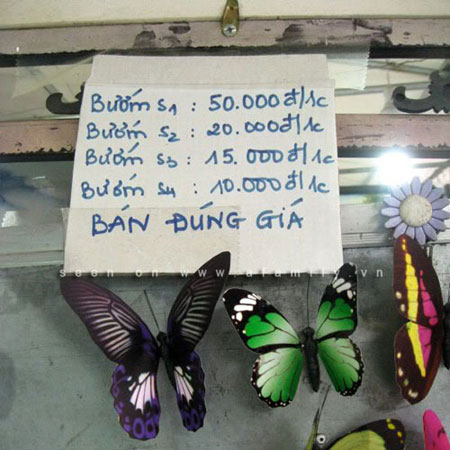 Bướm S1 : 50.000đ/1c
Bướm S2 : 20.000đ/1c
Bướm S3 : 15.000đ/1c
Bướm S4 : 10.000đ/1c
BÁN ĐÚNG GIÁ
seen on www.afamily.vn